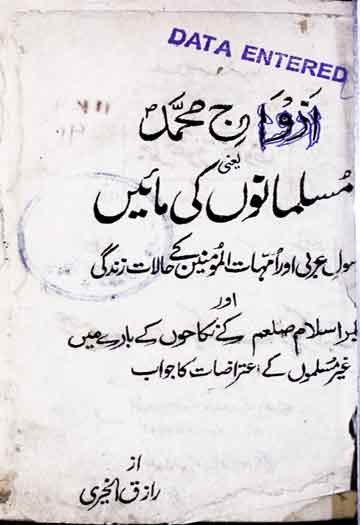 DATA ENTERED
ازواج محمدؐ
یعنی
مسلمانوں کی مائیں
سول عربی اور امہات المومنین کے حالات زندگی
اور
بر اسلام صلعم کے نکاحوں کے بارے میں
غیر مسلموں کے اعتراضات کا جواب
از
رازق الخیری